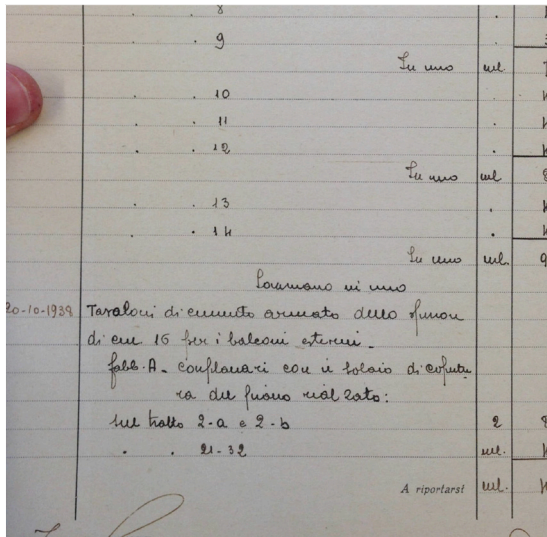 . . 8 .
. . 9 .
In uno ml.
. . 10 .
. . 11 .
. . 12 .
In uno ml. 8
. . 13 .
. . 14 .
In uno ml. 9
Sommano in uno
20-10-1938 Tavoloni di cemento armato dello spessore
di cm. 16 per i balconi esterni.
fabb. A. Complanari con il solaio di copertu
ra del piano rialzato:
sul tratto 2-a e 2-b 2 8
. . 21-32 ml.
A riportarsi ml.